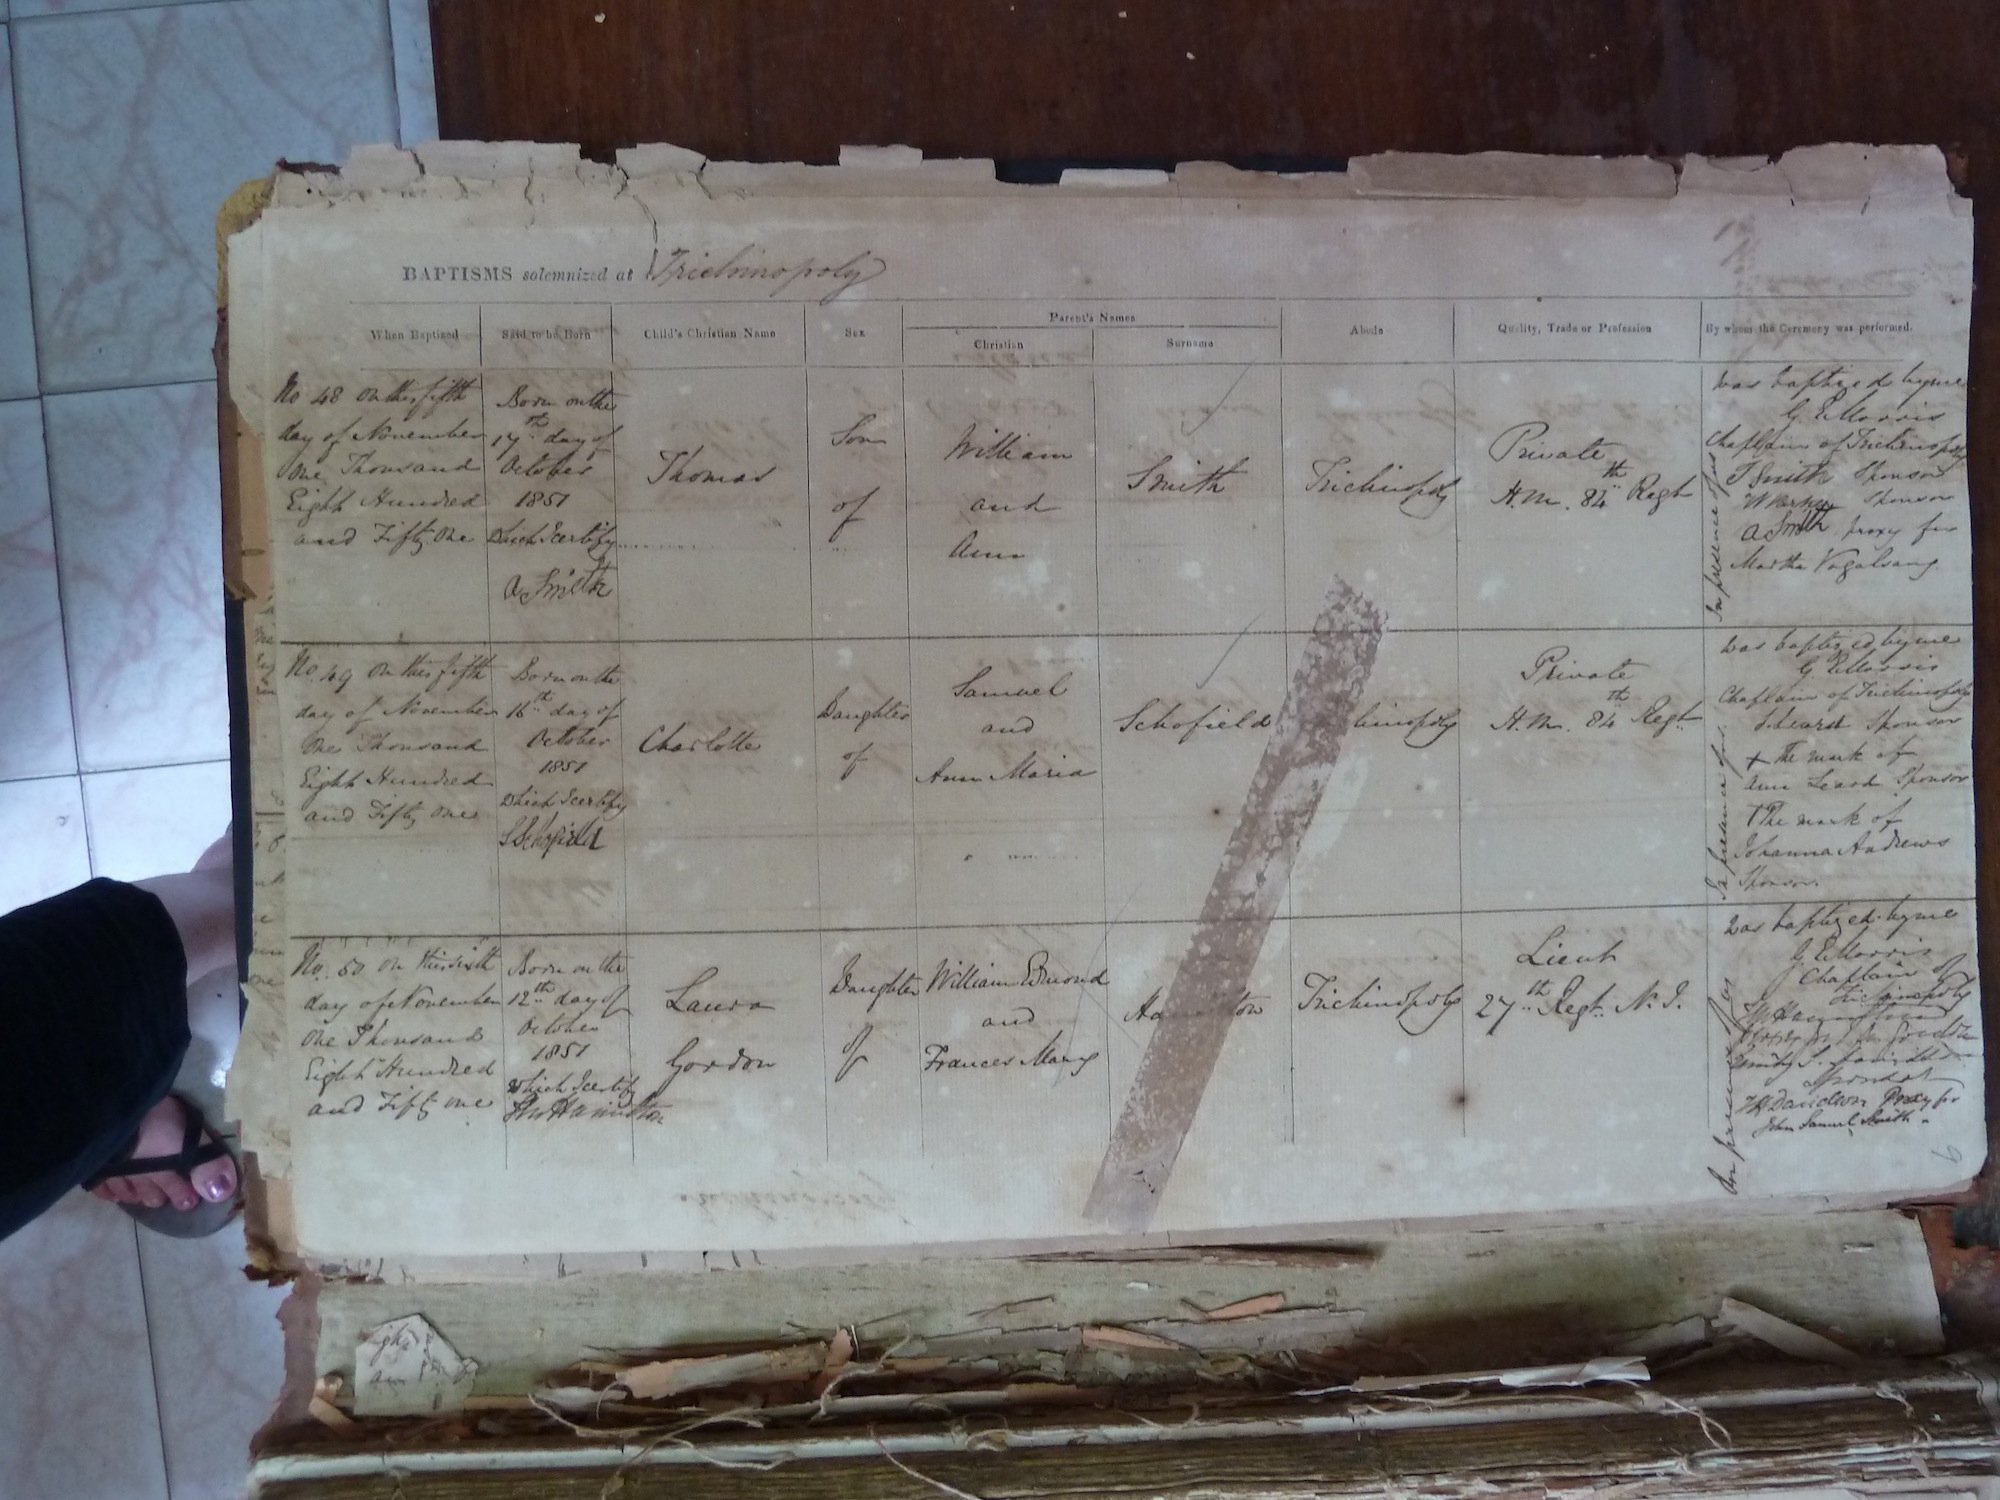 BAPTISMS solemnized at Trichinopoly
When Baptized
Said to be Born
Child's Christian Name
Sex
Parent's Names
Christian
Surname
Abode
Quality, Trade or Profession
By whom the Ceremony was performed.
No 48 On this fifth
day of November
One Thousand
Eight Hundred
and Fifty One
Born on the
17th day of
October
1851
Which I certify
A Smith
Thomas
Son
of
William
and
Ann
Smith
Trichinopoly
Private
H.M. 84th Regt
Was baptized by me
G E Morris
Chaplain of Trichinopoly
In presence of us
T Smith Sponsor
Sponsor
A Smith proxy for
Martha Vogalsang.
No. 49 On this fifth
day of November
One Thousand
Eight Hundred
and Fifty One
Born on the
16th day of
October
1851
Which I certify
S Schofield
Charlotte
Daughter
of
Samuel
and
Ann Maria
Schofield
hinopoly
Private
H.M. 84th Regt
Was baptized by me
G E Morris
Chaplain of Trichinopoly
In presence of us
Sponsor
+ The mark of
Ann Leard Sponsor
+ The mark of
Johanna Andrews
Sponsor.
No. 50 On this sixth
day of November
One Thousand
Eight Hundred
and Fifty one
Born on the
12th day of
October
1851
Which I certify
Hamilton
Laura
Gordon
Daughter
of
William Edmond
and
Frances Mary
Hamilton
Trichinopoly
Lieut
27th Regt. N. I.
Was baptized by me
G E Morris
Chaplain of
Trichinopoly
In presence of us
Sponsor
Davidson Proxy for
John Samuel Smith.